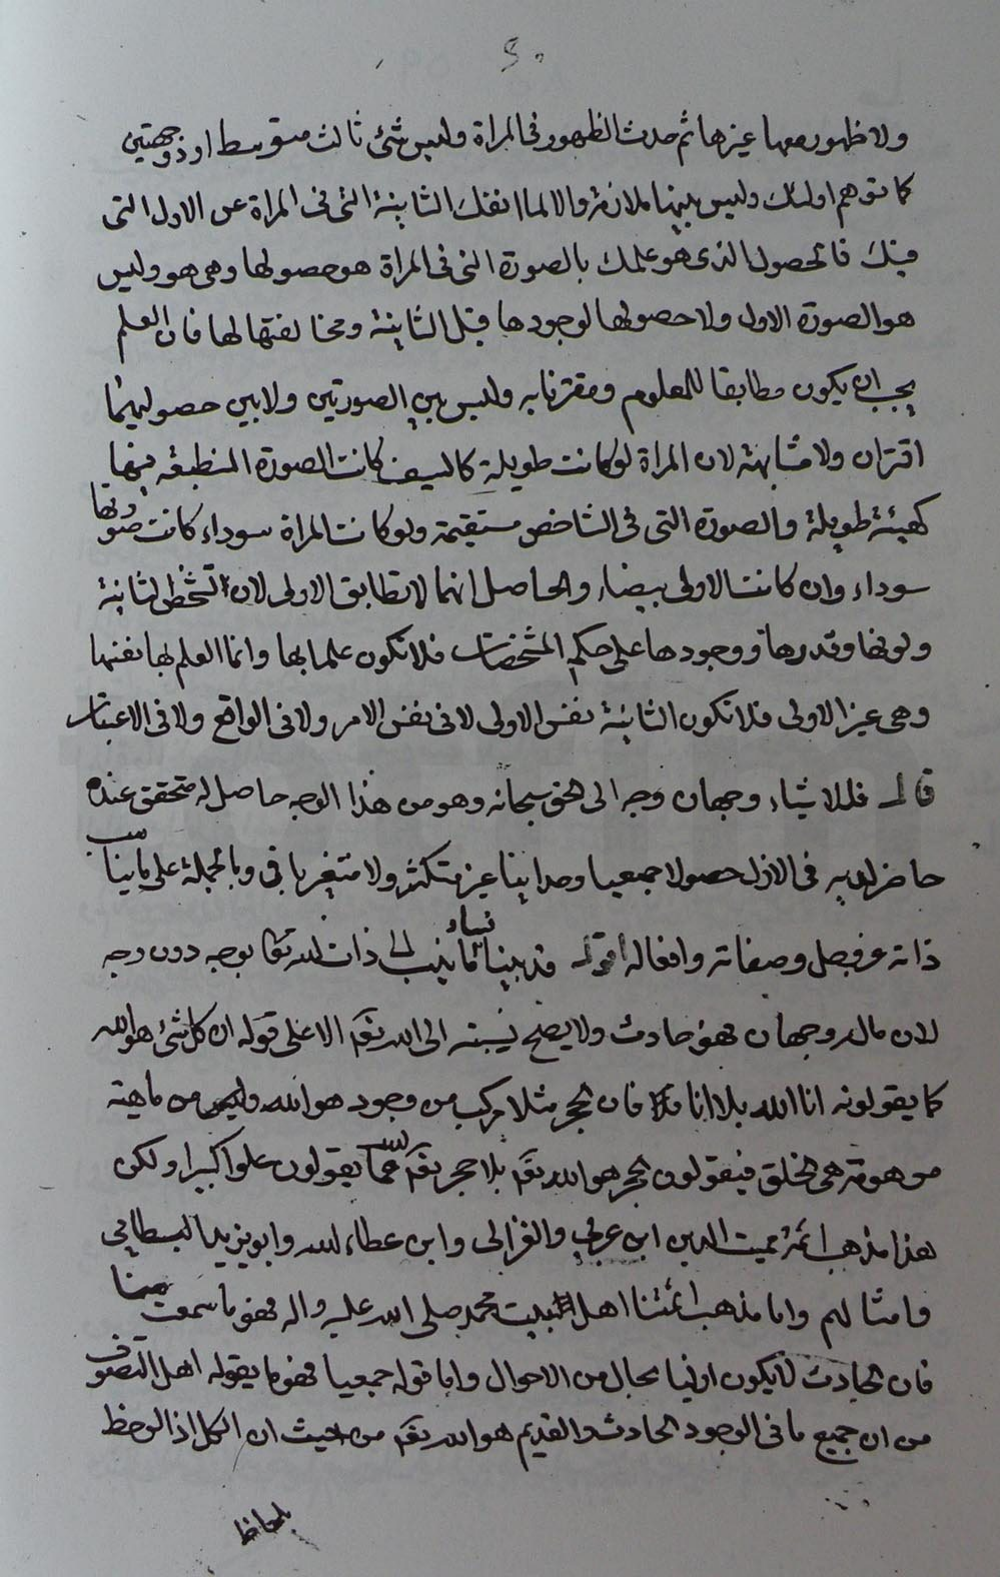 ٥٠
ولا ظهور معها غيرها ثم حدث الظهور فى المراة وليس شئ ثالث متوسط او ذو جهتين
كما توهم اولئك وليس بينهما ملازمة والا لما انفك الثانية التى فى المراة عن الاول التى
فيك فالحصول الذى هو علمك بالصورة التى فى المراة هو حصولها وهى هو وليس
هو الصورة الاولى ولا حصولها لوجودها قبل الثانية ومخالفتها لها فان العلم
يجب ان يكون مطابقا للمعلوم ومقترنا به وليس بين الصورتين ولا بين حصوليهما
اقتران ولا مشابهة لان المراة لو كانت طويلة كالسيف كانت الصورة المنطبعة فيها
كهيئة طويلة والصورة التى فى الشاخص مستقيمة ولو كانت المراة سوداء كانت صورتها
سوداء وان كانت الاولى بيضاء والحاصل انها لا تطابق الاولى لان تشخص الثانية
ولونها وقدرها ووجودها على حكم المشخصات فلا تكون علما بها وانما العلم بها نفسها
وهى غير الاولى فلا تكون الثانية نفس الاولى لا فى نفس الامر ولا فى الواقع ولا فى الاعتبار
قال فللاشياء وجهان وجه الى الحق سبحانه وهو من هذا الوجه حاصل له متحقق عنده
حاضر لديه فى الازل حصولا جمعيا وحدانيا غير متكثر ولا متغير باقى وبالجملة على ما يناسب
ذاته عز وجل وصفاته وافعاله اقول قد بينا فيما ينسب الى ذات الله تعالى بوجه دون وجه
لان ماله وجهان فهو حادث ولا يصح نسبته الى الله تعالى الا على قوله ان كل شئ هو الله
كما يقولونه انا الله بلا انا فان الحجر مثلا مركب من وجود هو الله وليس من ماهية
موهومة هى الخلق فيقولون الحجر هو الله تعالى بلا حجر تعالى الله عما يقولون علوا كبيرا ولكن
هذا مذهب ائمة مميت الدين ابن عربى والغزالى وابن عطاء الله وابو يزيد البسطامى
وامثالهم واما مذهب ائمتنا اهل بيت محمد صلى الله عليه واله فهو ما سمعت منا
فان الحادث لا يكون ازليا بحال من الاحوال واما قوله جمعيا فهو ما يقوله اهل التصوف
من ان جميع ما فى الوجود الحادث والقديم هو الله تعالى من حيث ان الكل اذا لوحظ
بلحاظ